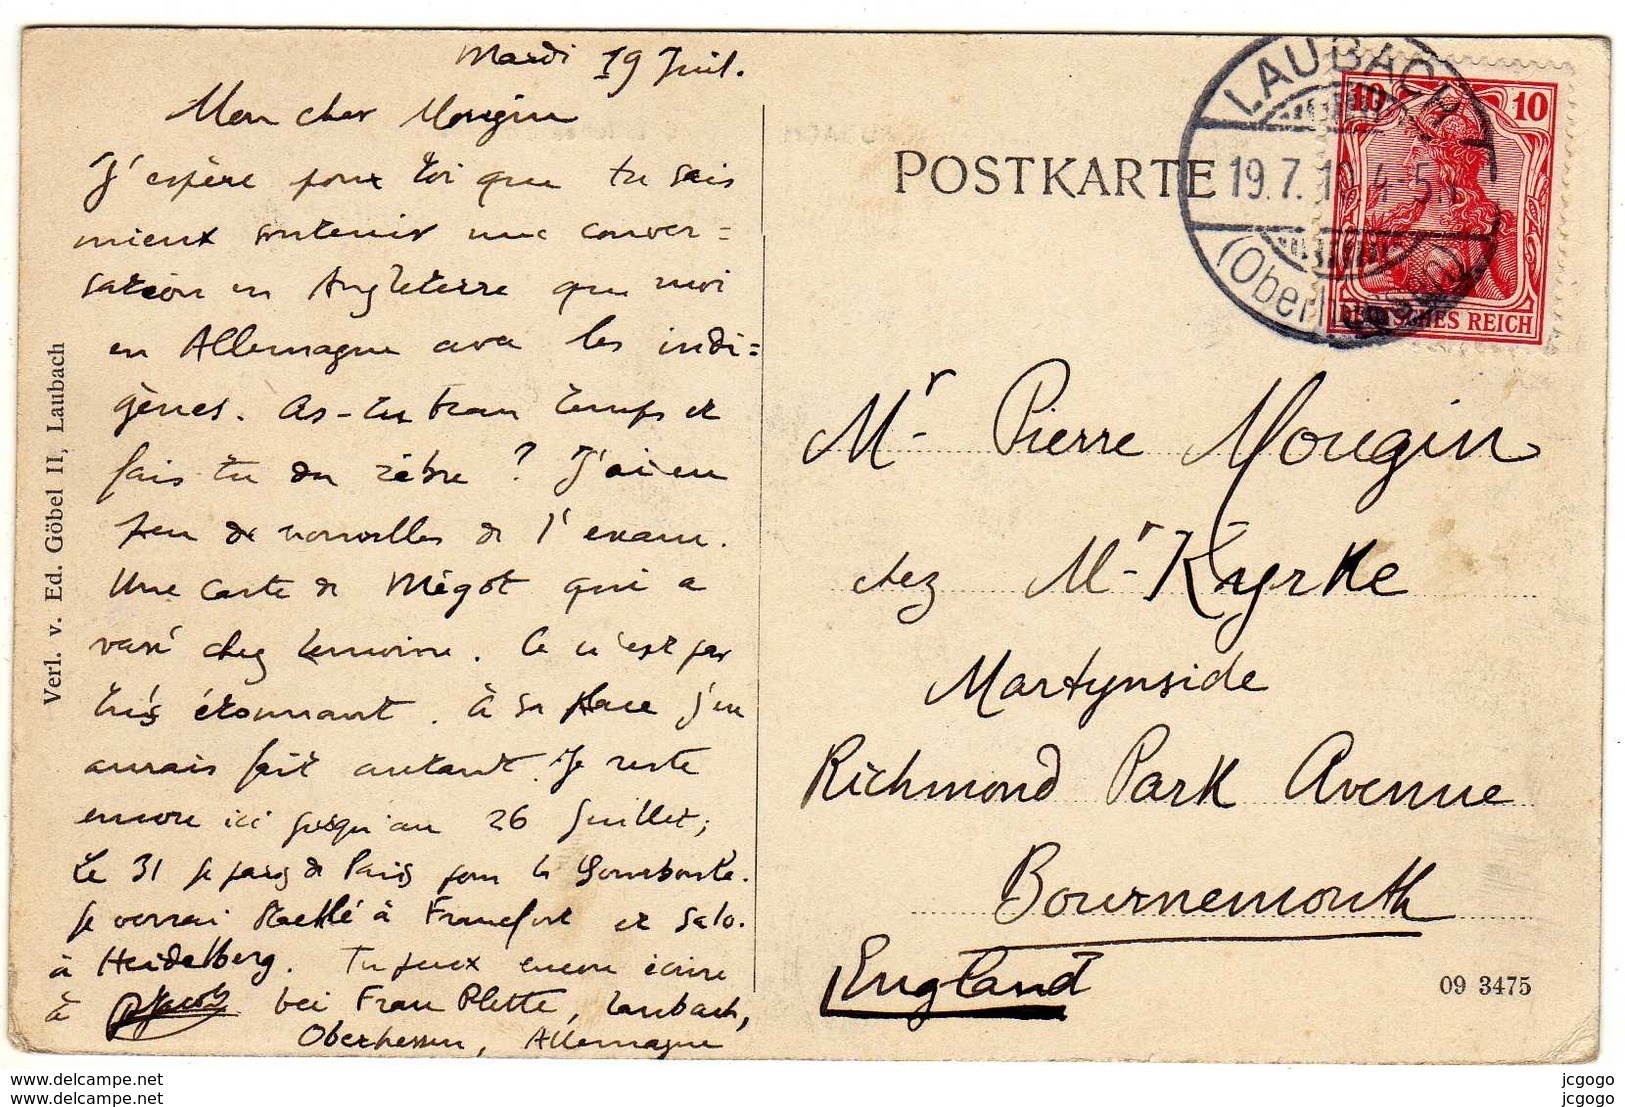 Mardi 19 Juil.
Mon cher Mougin
J'espère pour toi que tu sais
mieux soutenir une conver=
sation en Angleterre que moi
en Allemagne avec les indi=
gènes. As-tu beau temps et
fais tu du zèbre ? J'ai eu
peu de nouvelles de l'exam.
Une carte de Mégot qui a
vaxé chez Lemoine. Ce n'est pas
très étonnant. à sa place j'en
aurais fait autant. Je reste
encore ici jusqu'au 26 Juillet;
Le 31 je pars de Paris pour la Bourboule.
Je verrai à Francfort et Salo.
à Heidelberg. Tu peux encore écrire
à P Jacob bei Frau Plette, Laubach,
Oberhessen, Allemagne
Verl. v. Ed. Göbel II, Laubach
POSTKARTE
LAUBACH
19.7.10.4-5N
(Oberhessen)
10 10
DEUTSCHES REICH
Mr Pierre Mougin
chez Mr Kyrke
Martynside
Richmond Park Avenue
Bournemouth
England
09 3475
www.delcampe.net
www.delcampe.net
jcgogo
jcgogo